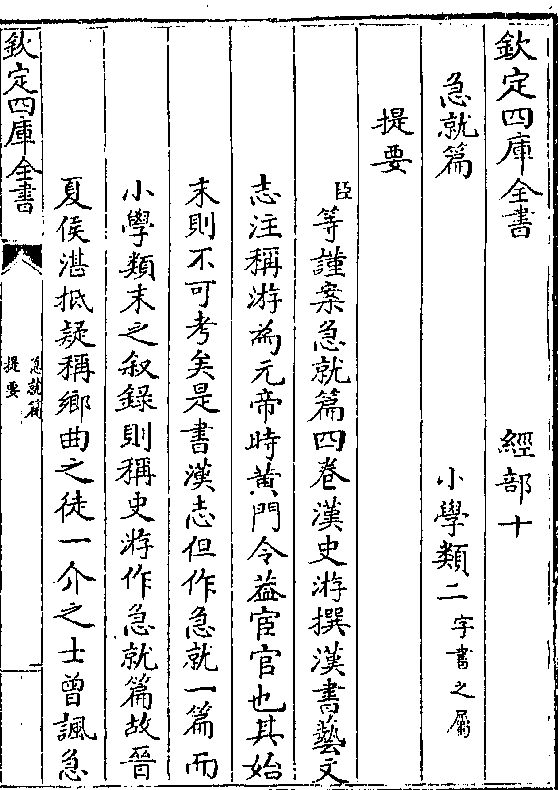 欽定四庫全書　經部十
急就篇　小學類二字書之屬
提要
臣等謹案急就篇四卷漢史游撰漢書藝文
志注稱游為元帝時黄門令葢宦官也其始
末則不可考矣是書漢志但作急就一篇而
小學類末之叙錄則稱史游作急就篇故晉
夏侯湛抵疑稱鄉曲之徒一介之士曾諷急
欽定四庫全書
急就篇
提要